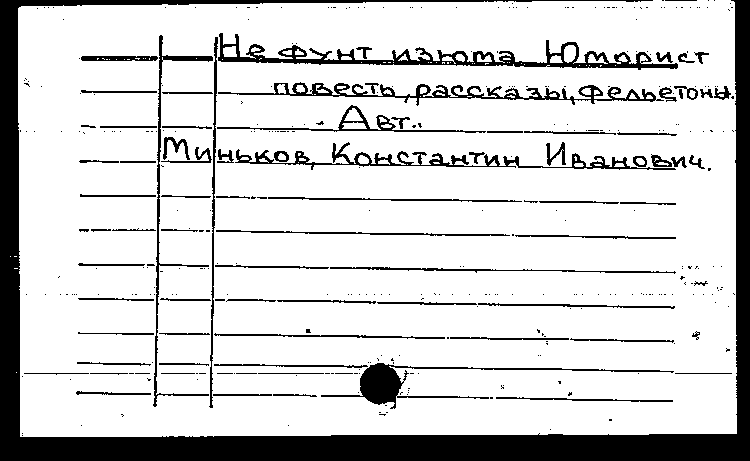 Не фунт изюма Юморист
повесть, рассказы, фельетоны.
Авт.:
Миньков, Константин Иванович.